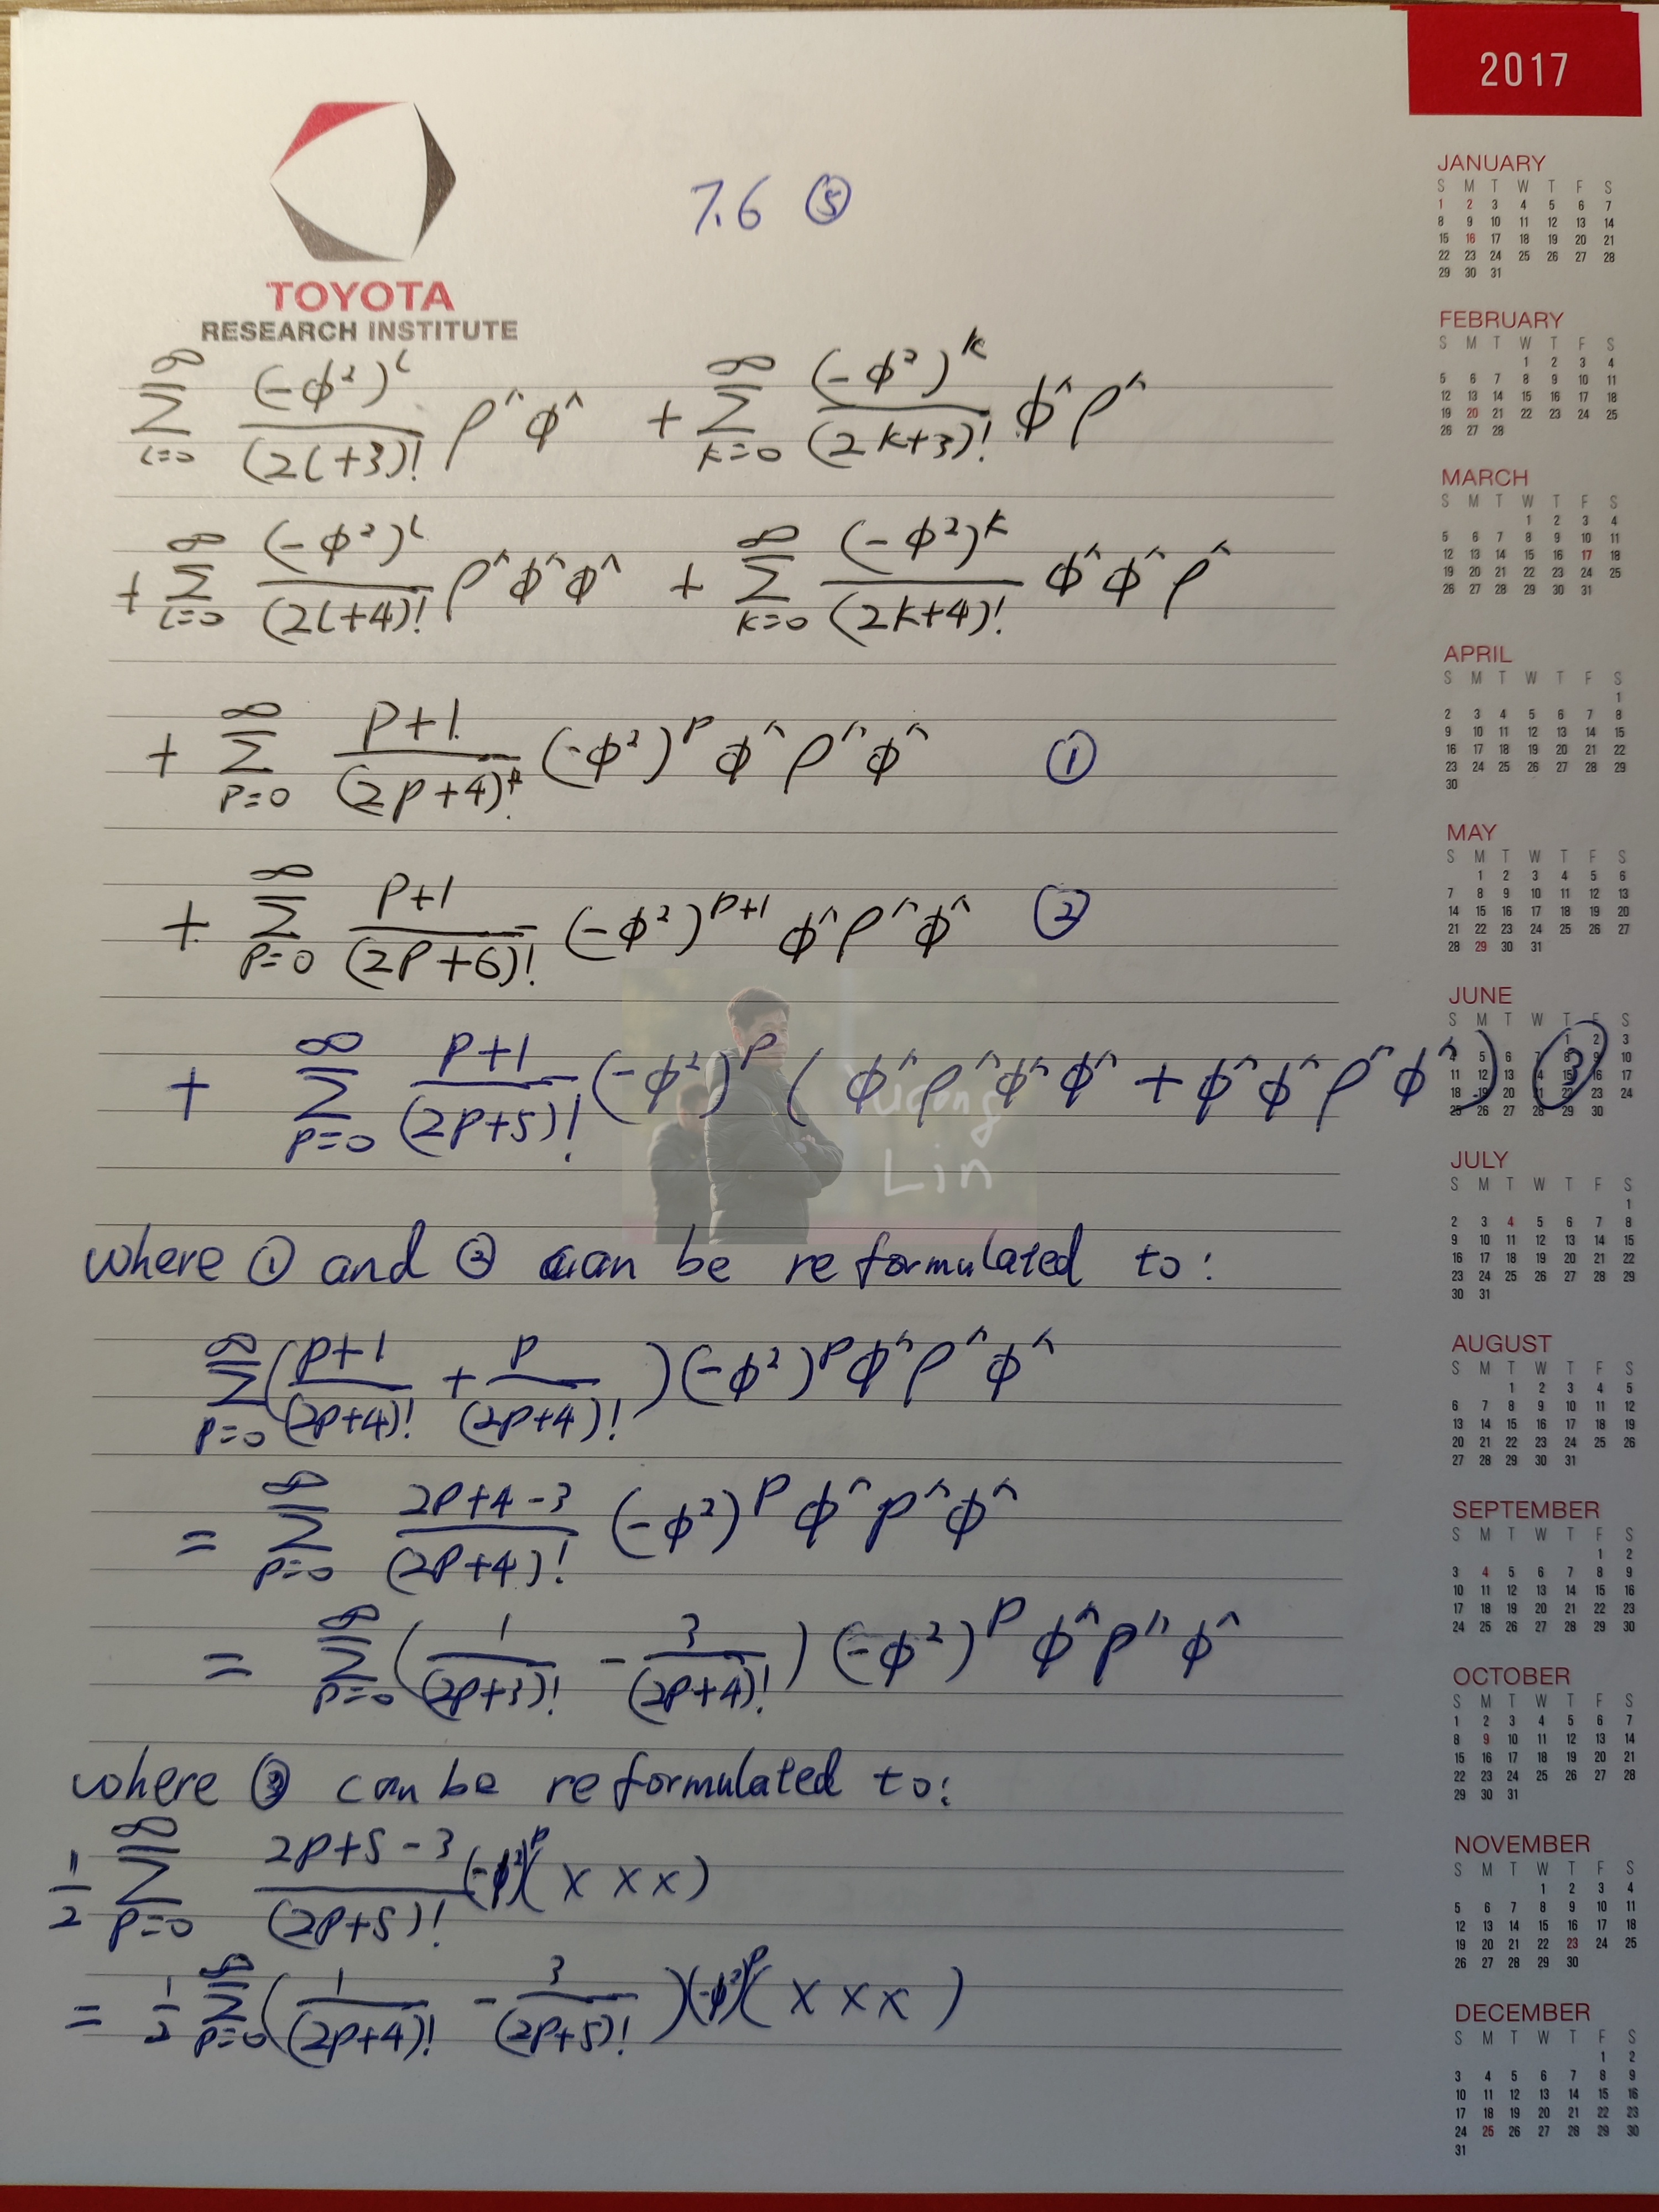 2017
TOYOTA
RESEARCH INSTITUTE
7.6 ⑤
∑_{l=0}^{∞} (-φ²)^l / (2l+3)! ρ^φ^ + ∑_{k=0}^{∞} (-φ²)^k / (2k+3)! φ^ρ^
+ ∑_{l=0}^{∞} (-φ²)^l / (2l+4)! ρ^φ^φ^ + ∑_{k=0}^{∞} (-φ²)^k / (2k+4)! φ^φ^ρ^
+ ∑_{p=0}^{∞} p+1 / (2p+4)! (-φ²)^p φ^ρ^φ^ ①
+ ∑_{p=0}^{∞} p+1 / (2p+6)! (-φ²)^{p+1} φ^ρ^φ^ ②
+ ∑_{p=0}^{∞} p+1 / (2p+5)! (-φ²)^p (φ^ρ^φ^φ^ + φ^φ^ρ^φ^) ③
Lin
where ① and ② can be reformulated to:
∑_{p=0}^{∞} (p+1 / (2p+4)! + p / (2p+4)!) (-φ²)^p φ^ρ^φ^
= ∑_{p=0}^{∞} 2p+4-3 / (2p+4)! (-φ²)^p φ^ρ^φ^
= ∑_{p=0}^{∞} (1 / (2p+3)! - 3 / (2p+4)!) (-φ²)^p φ^ρ^φ^
where ③ can be reformulated to:
1/2 ∑_{p=0}^{∞} 2p+5-3 / (2p+5)! (-φ²)^p (x x x)
= 1/2 ∑_{p=0}^{∞} (1 / (2p+4)! - 3 / (2p+5)!) (-φ²)^p (x x x)
JANUARY
S M T W T F S
1 2 3 4 5 6 7
8 9 10 11 12 13 14
15 16 17 18 19 20 21
22 23 24 25 26 27 28
29 30 31
FEBRUARY
S M T W T F S
1 2 3 4
5 6 7 8 9 10 11
12 13 14 15 16 17 18
19 20 21 22 23 24 25
26 27 28
MARCH
S M T W T F S
1 2 3 4
5 6 7 8 9 10 11
12 13 14 15 16 17 18
19 20 21 22 23 24 25
26 27 28 29 30 31
APRIL
S M T W T F S
1
2 3 4 5 6 7 8
9 10 11 12 13 14 15
16 17 18 19 20 21 22
23 24 25 26 27 28 29
30
MAY
S M T W T F S
1 2 3 4 5 6
7 8 9 10 11 12 13
14 15 16 17 18 19 20
21 22 23 24 25 26 27
28 29 30 31
JUNE
S M T W T F S
1 2 3
5 6 7 8 9 10
11 12 13 14 15 16 17
18 19 20 21 22 23 24
25 26 27 28 29 30
JULY
S M T W T F S
1
2 3 4 5 6 7 8
9 10 11 12 13 14 15
16 17 18 19 20 21 22
23 24 25 26 27 28 29
30 31
AUGUST
S M T W T F S
1 2 3 4 5
6 7 8 9 10 11 12
13 14 15 16 17 18 19
20 21 22 23 24 25 26
27 28 29 30 31
SEPTEMBER
S M T W T F S
1 2
3 4 5 6 7 8 9
10 11 12 13 14 15 16
17 18 19 20 21 22 23
24 25 26 27 28 29 30
OCTOBER
S M T W T F S
1 2 3 4 5 6 7
8 9 10 11 12 13 14
15 16 17 18 19 20 21
22 23 24 25 26 27 28
29 30 31
NOVEMBER
S M T W T F S
1 2 3 4
5 6 7 8 9 10 11
12 13 14 15 16 17 18
19 20 21 22 23 24 25
26 27 28 29 30
DECEMBER
S M T W T F S
1 2
3 4 5 6 7 8 9
10 11 12 13 14 15 16
17 18 19 20 21 22 23
24 25 26 27 28 29 30
31